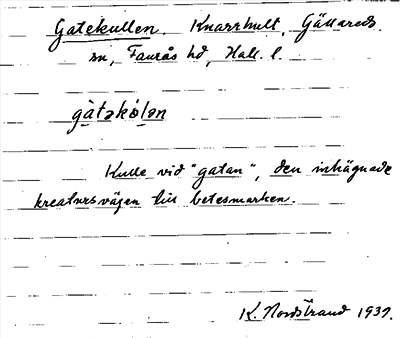 Gatekullen. Knarrhult, Gällareds
sn, Faurås hd, Hall. l.
gàtəkòlən
Kulle vid "gatan", den inhägnade
kreatursvägen till betesmarken.
K. Nordstrand 1937.